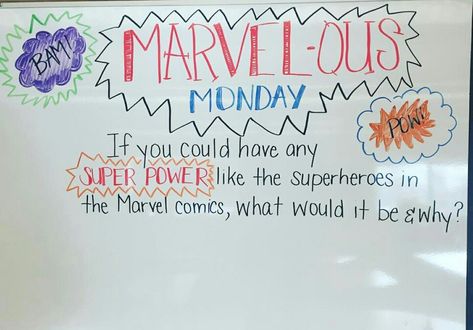 BAM!
MARVEL-OUS
MONDAY
POW!
If you could have any
SUPER POWER like the superheroes in
the Marvel comics, what would it be & why?